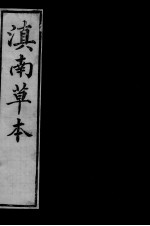 滇南草本